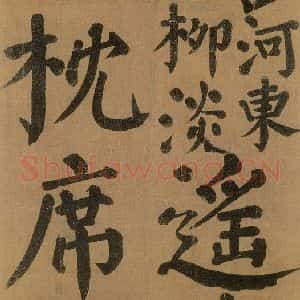 河東
柳淡遥
枕席
Shufawang.CN